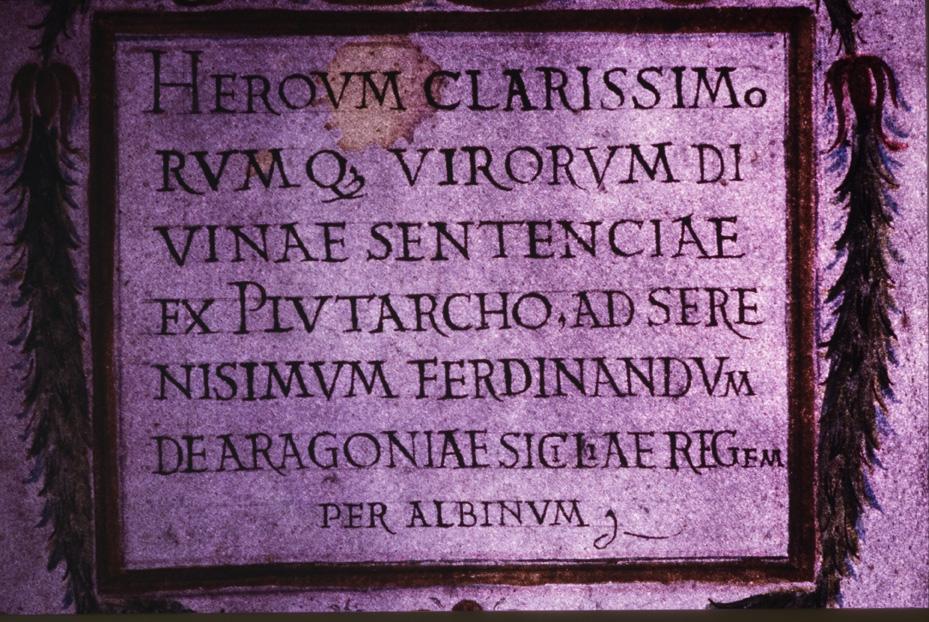 HEROVM CLARISSIMO
RVMQ; VIRORVM DI
VINAE SENTENCIAE
EX PLVTARCHO, AD SERE
NISIMVM FERDINANDVM
DE ARAGONIAE SICILIAE REGEM
PER ALBINVM